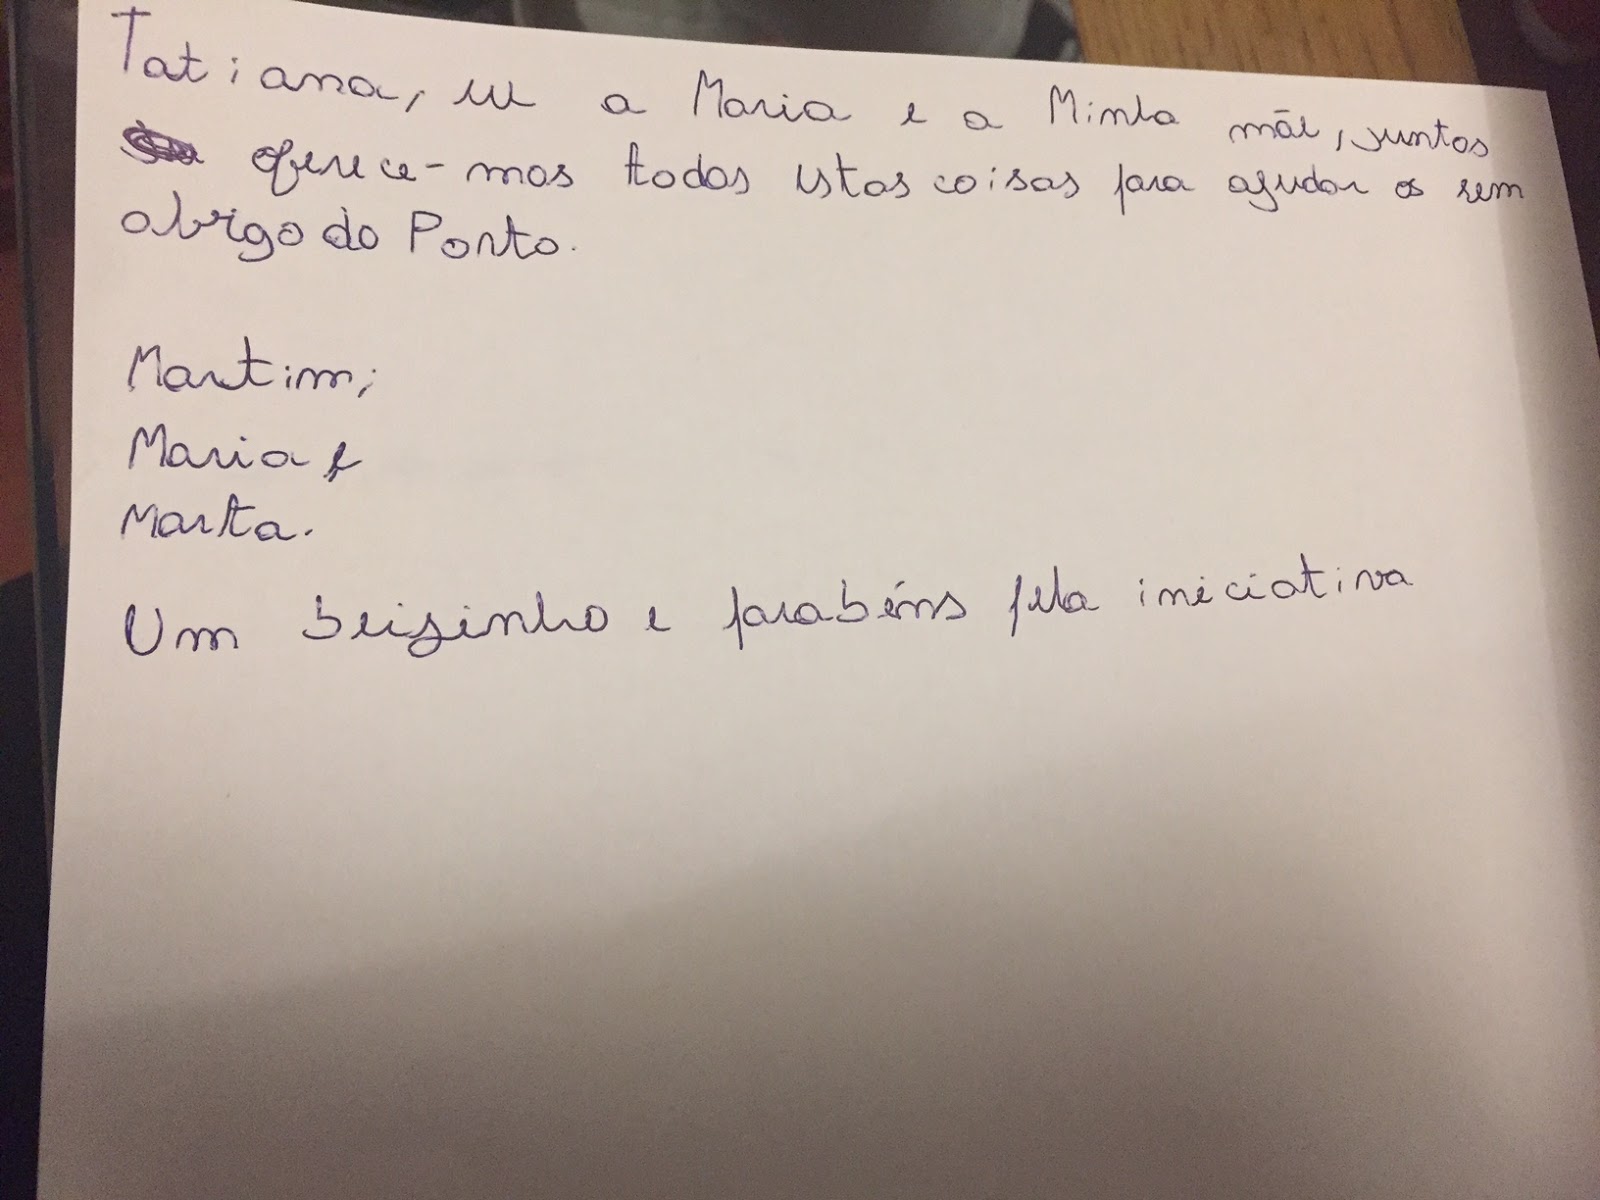 Tatiana, eu a Maria e a Minha mãe, juntos
oferece-mos todas estas coisas para ajudar os sem
abrigo do Porto.
Martim;
Maria &
Marta.
Um beijinho e parabéns pela iniciativa